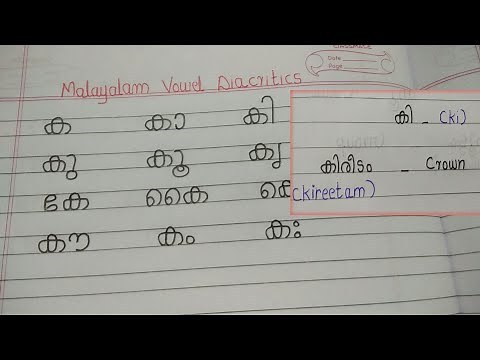 Date
Page
Malayalam Vowel Diacritics
ക കാ കി
കു കൂ കൃ
കേ കൈ
കൗ കം കഃ
കി - (ki)
കിരീടം - Crown
(kireetam)